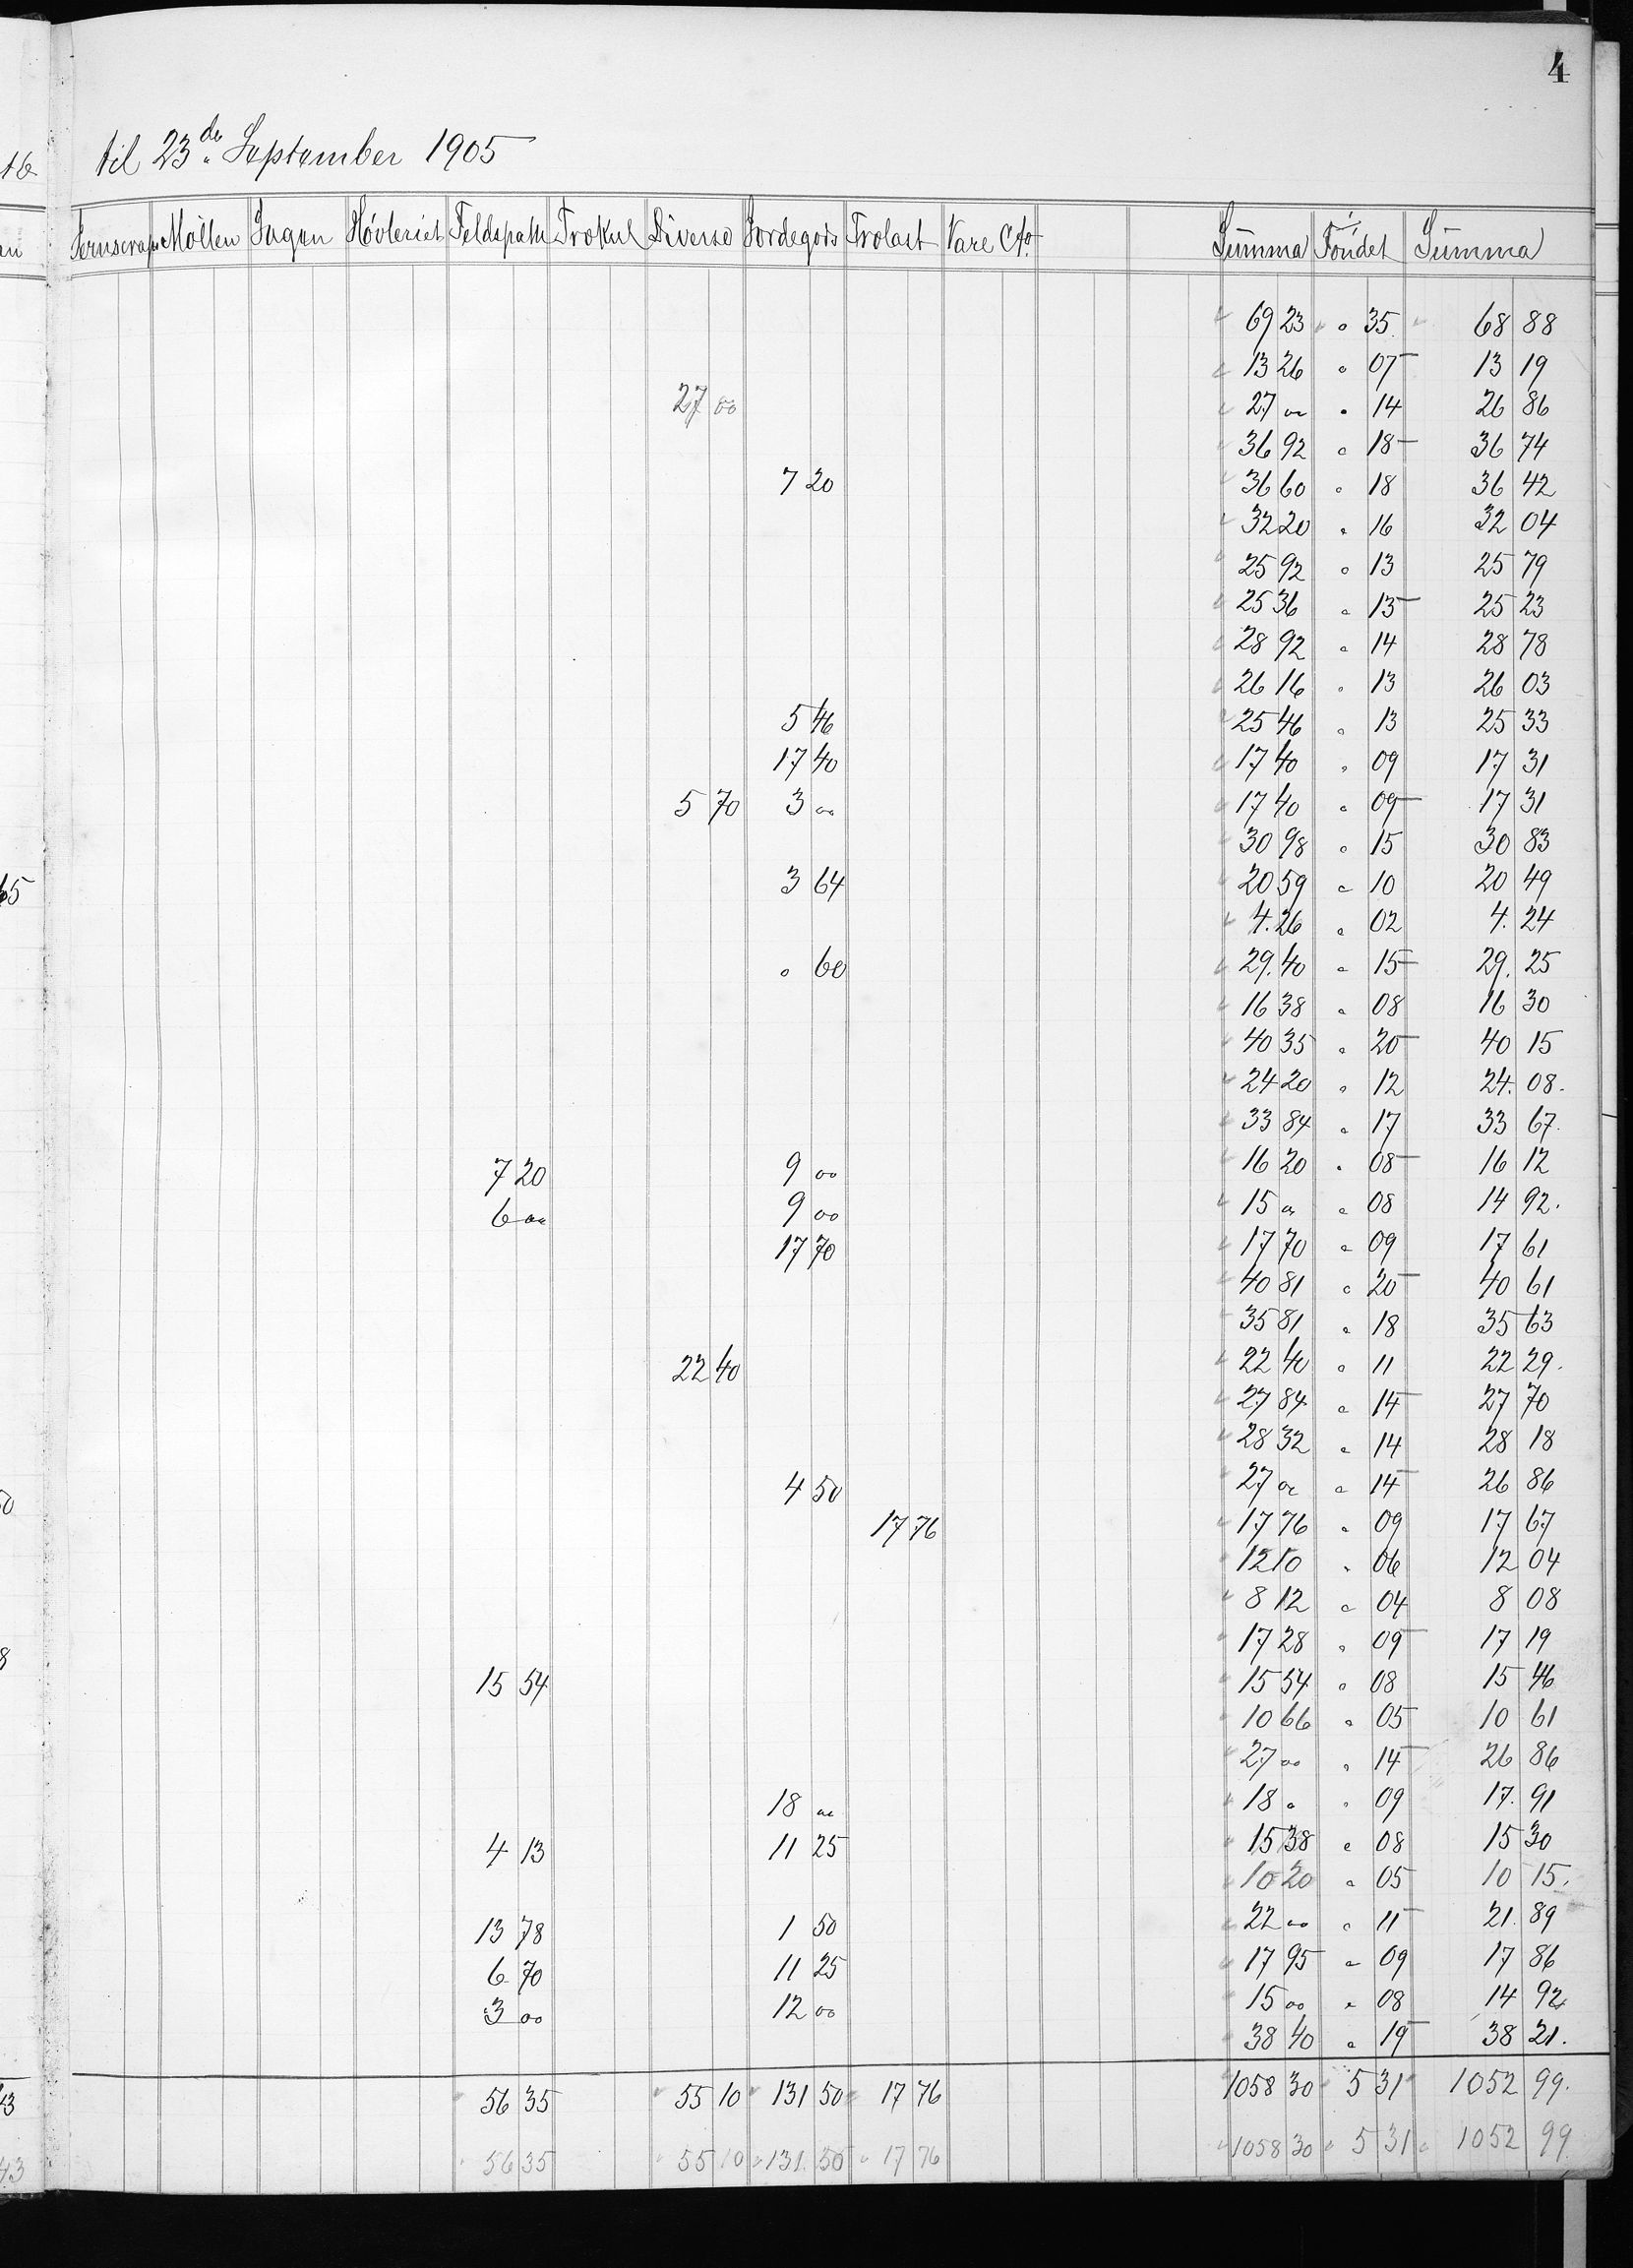 4
til 23de September 1905
Jernscrap Møllen Sagen Høvleriet Feldspath Trækul Diverse Jordegods Trælast Vare Cto. Summa Fondet Summa
69 23 " 35 68 88
13 26 " 07 13 19
27 00 27 00 " 14 26 86
36 92 " 18 36 74
7 20 36 60 " 18 36 42
32 20 " 16 32 04
25 92 " 13 25 79
25 36 " 13 25 23
28 92 " 14 28 78
26 16 " 13 26 03
5 46 25 46 " 13 25 33
17 40 17 40 " 09 17 31
5 70 3 00 17 40 " 09 17 31
30 98 " 15 30 83
3 64 20 59 " 10 20 49
4.26 " 02 4.24
" 60 29.40 " 15 29.25
16 38 " 08 16 30
40 35 " 20 40 15
24 20 " 12 24.08.
33 84 " 17 33 67.
7 20 9 00 16 20 " 08 16 12
6 00 9 00 15 " " 08 14 92.
17 70 17 70 " 09 17 61
40 81 " 20 40 61
35 81 " 18 35 63
22 40 22 40 " 11 22 29.
27 84 " 14 27 70
28 32 " 14 28 18
4 50 27 00 " 14 26 86
17 76 17 76 " 09 17 67
12 10 " 06 12 04
8 12 " 04 8 08
17 28 " 09 17 19
15 54 15 54 " 08 15 46
10 66 " 05 10 61
27 00 " 14 26 86
18 00 18 " " 09 17.91
4 13 11 25 15 38 " 08 15 30
10 20 " 05 10 15.
13 78 1 50 22 00 " 11 21.89
6 70 11 25 17 95 " 09 17 86
3 00 12 00 15 00 " 08 14 92
38 40 " 19 38 21.
56 35 55 10 131 50 17 76 1058 30 5 31 1052 99.
56 35 55 10 131 50 17 76 1058 30 5 31 1052 99